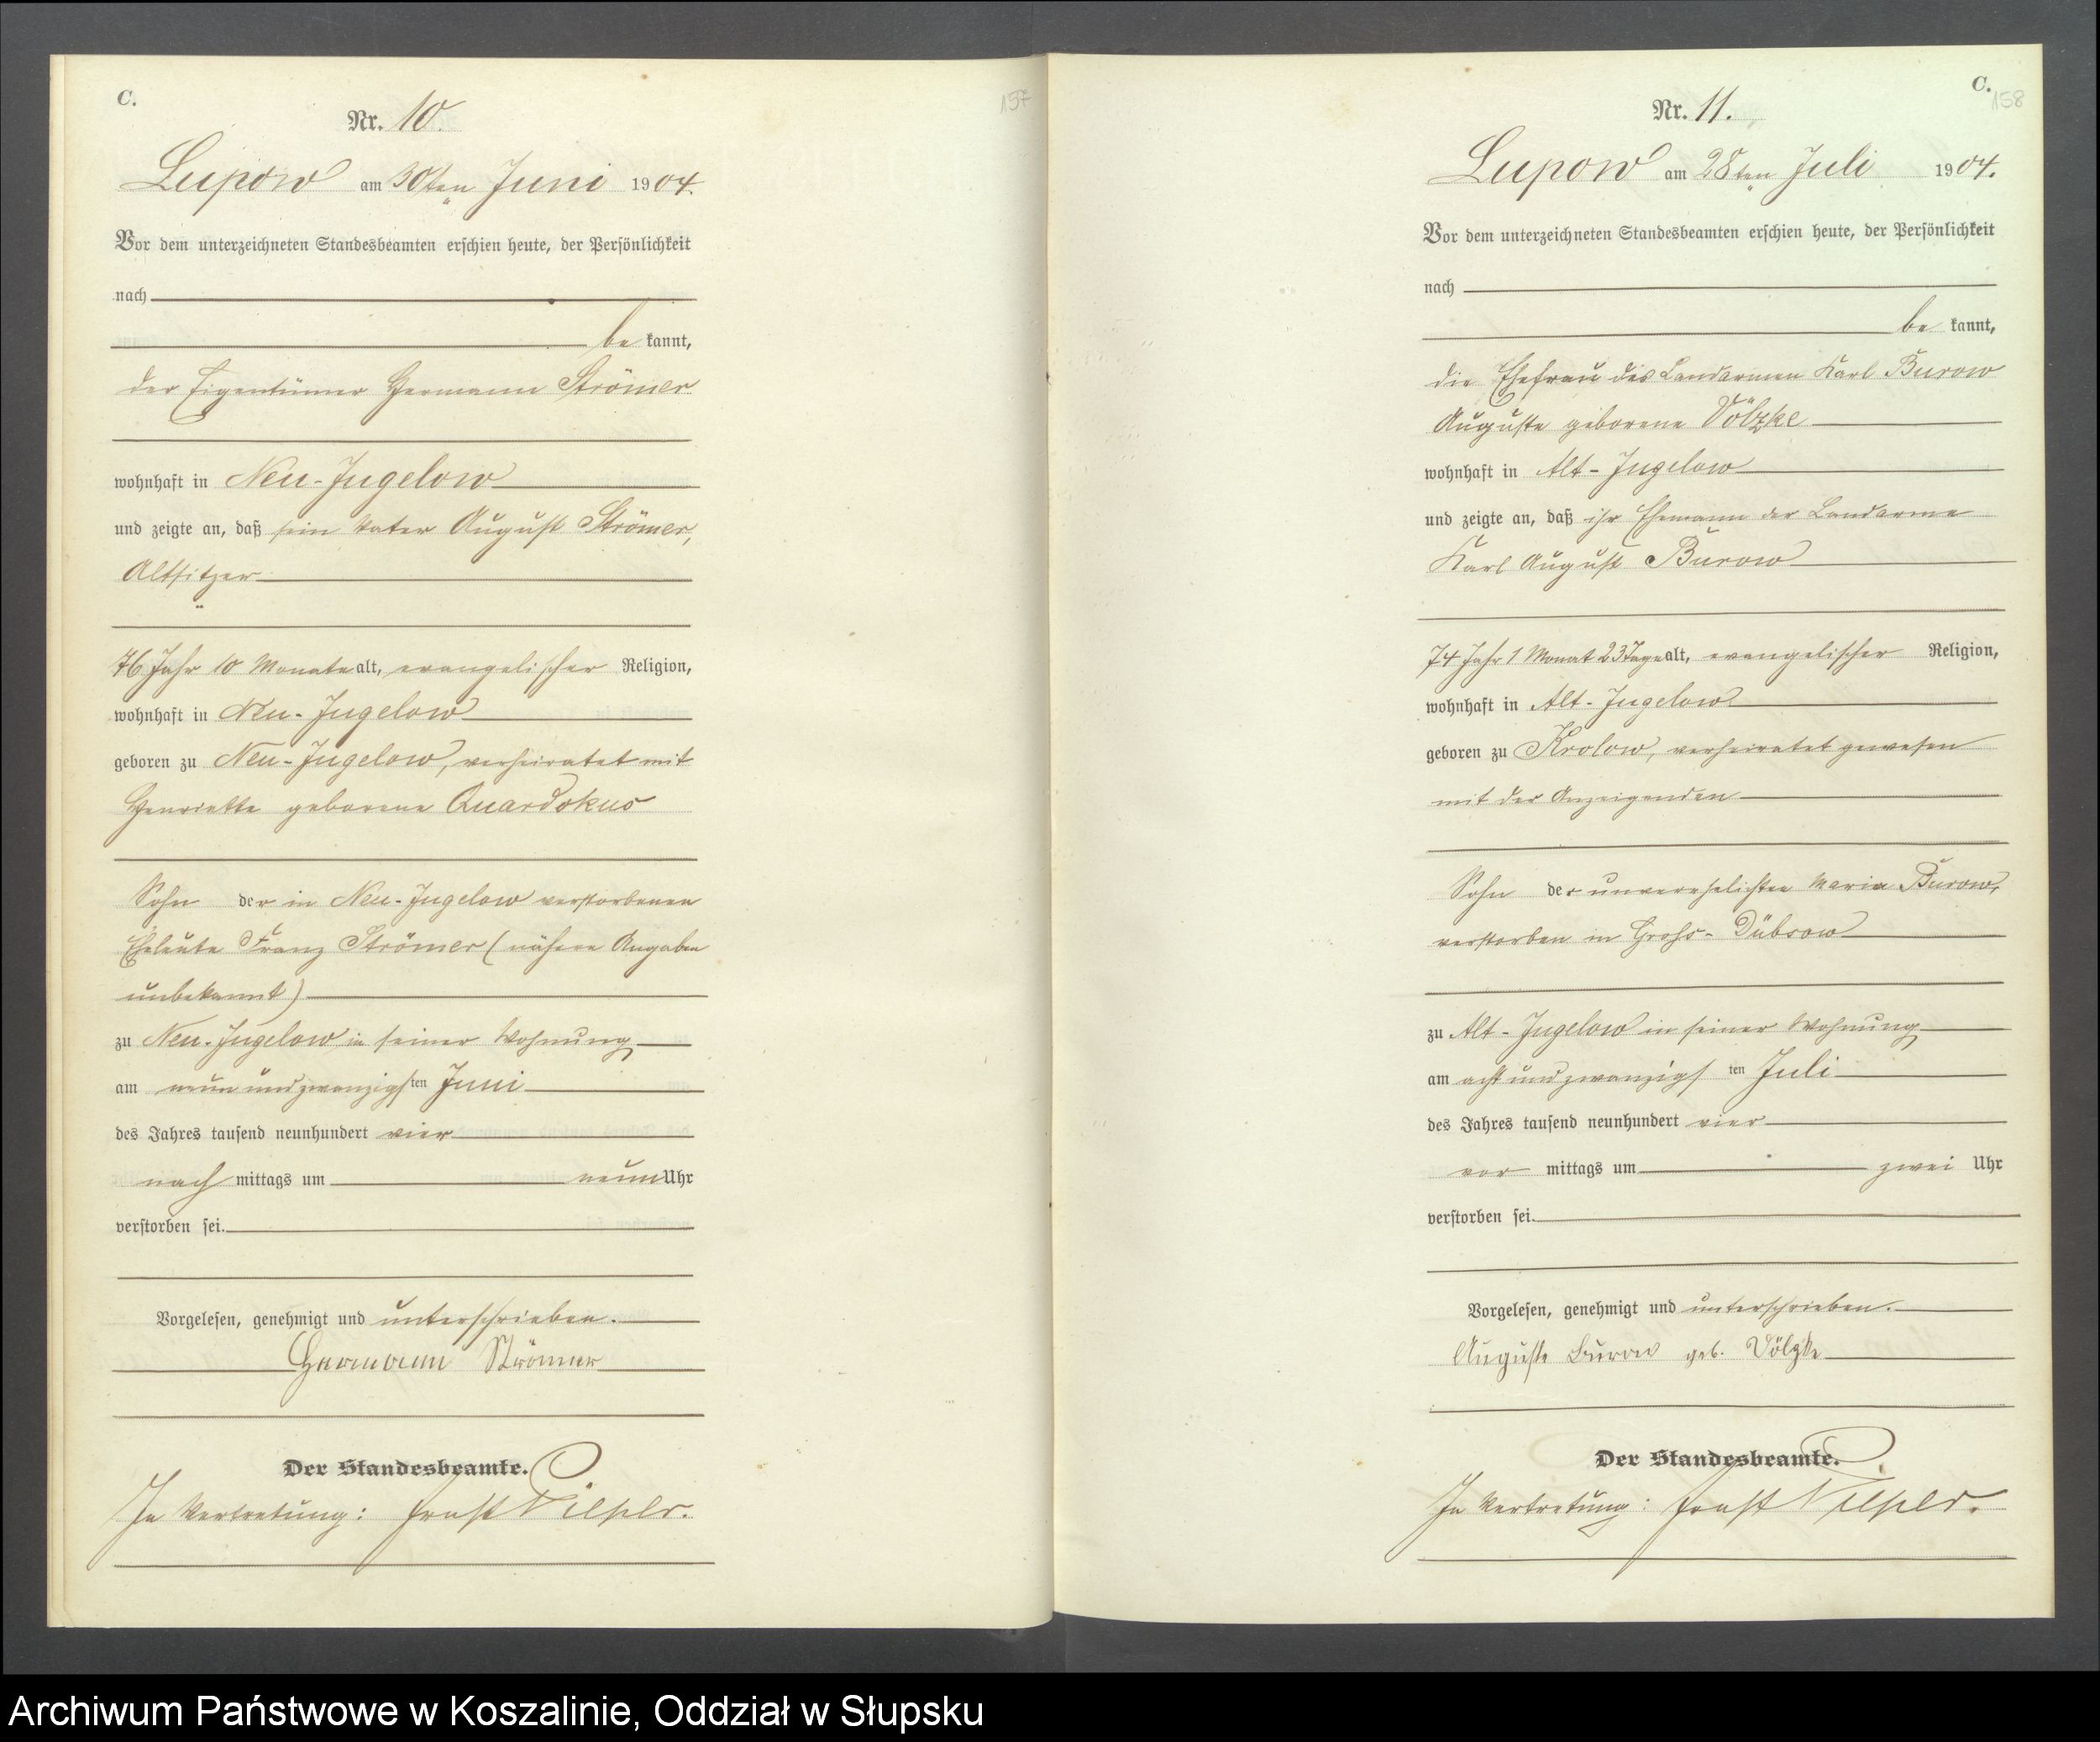 C.
157
Nr. 10.
Lupow am 30ten Juni 1904.
Vor dem unterzeichneten Standesbeamten erschien heute, der Persönlichkeit
nach
be kannt,
der Eigentümer Hermann Strömer
wohnhaft in Neu-Jugelow
und zeigte an, daß sein Vater August Strömer,
Altsitzer
76 Jahr 10 Monate alt, evangelischer Religion,
wohnhaft in Neu-Jugelow
geboren zu Neu-Jugelow, verheiratet mit
Henriette geborene Quardokus
Sohn der in Neu-Jugelow verstorbenen
Eheleute Franz Strömer (nähere Angaben
unbekannt)
zu Neu-Jugelow in seiner Wohnung
am neun und zwanzigsten Juni
des Jahres tausend neunhundert vier
nach mittags um neun Uhr
verstorben sei.
Vorgelesen, genehmigt und unterschrieben.
Hermann Strömer
Der Standesbeamte.
In Vertretung: Ernst
C.
158
Nr. 11.
Lupow am 28ten Juli 1904.
Vor dem unterzeichneten Standesbeamten erschien heute, der Persönlichkeit
nach
be kannt,
die Ehefrau des Landarmen Karl Burow
Auguste geborene Völzke
wohnhaft in Alt-Jugelow
und zeigte an, daß ihr Ehemann der Landarme
Karl August Burow
74 Jahr 1 Monat 23 Tage alt, evangelischer Religion,
wohnhaft in Alt-Jugelow
geboren zu Krolow, verheiratet gewesen
mit der Anzeigenden
Sohn der unverehelichten Maria Burow,
verstorben in Grohs-Dübsow
zu Alt-Jugelow in seiner Wohnung
am acht und zwanzigsten Juli
des Jahres tausend neunhundert vier
vor mittags um zwei Uhr
verstorben sei.
Vorgelesen, genehmigt und unterschrieben.
Auguste Burow geb. Völzke
Der Standesbeamte.
In Vertretung: Ernst
Archiwum Państwowe w Koszalinie, Oddział w Słupsku